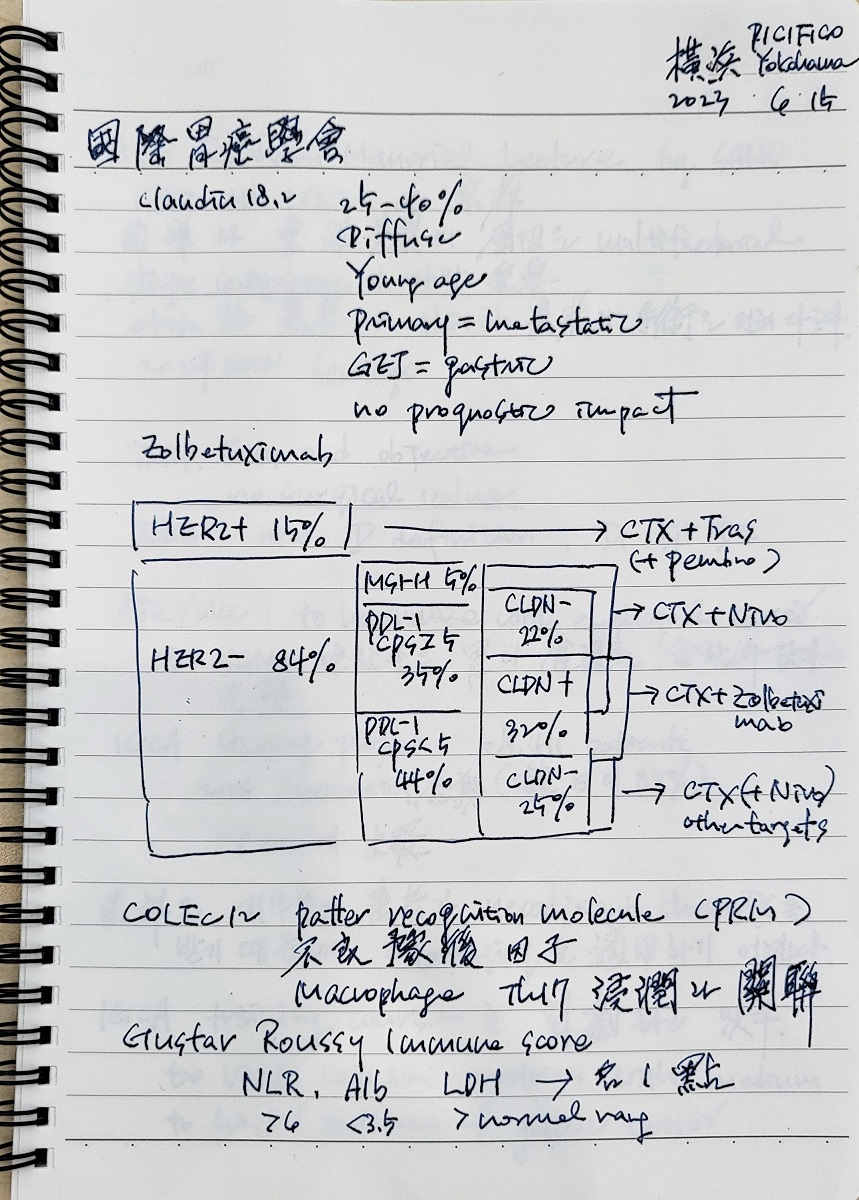 橫浜 PICIFICO
Yokohama
2023 6 15
國際胃癌學會
Claudin 18.2 25-40%
Diffuse
Young age
Primary = metastatic
GEJ = gastric
no prognostic impact
Zolbetuximab
HER2+ 15% → CTX + Tras
(+ pembro)
HER2- 84%
MSI-H 5%
PDL-1
CPS≥5
35%
PDL-1
CPS<5
44%
CLDN-
22%
CLDN+
32%
CLDN-
25%
→ CTX + Nivo
→ CTX + Zolbetuxi
mab
→ CTX (+ Nivo)
other targets
COLEC12 patter recognition molecule (PRM)
不良 豫後 因子
Macrophage Th17 浸潤과 關聯
Gustar Roussy Immune score
NLR, Alb LDH → 各 1 點
>6 <3.5 > normal rang